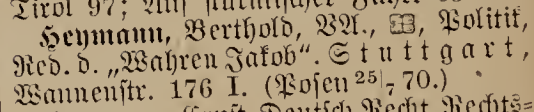 Tirol 97; Auf
Heymann, Berthold, VA., Politik,
Red. d. „Wahren Jakob“. Stuttgart,
Wannenstr. 176 I. (Posen 25|7 70.)
Deutsch Recht, Rechts-